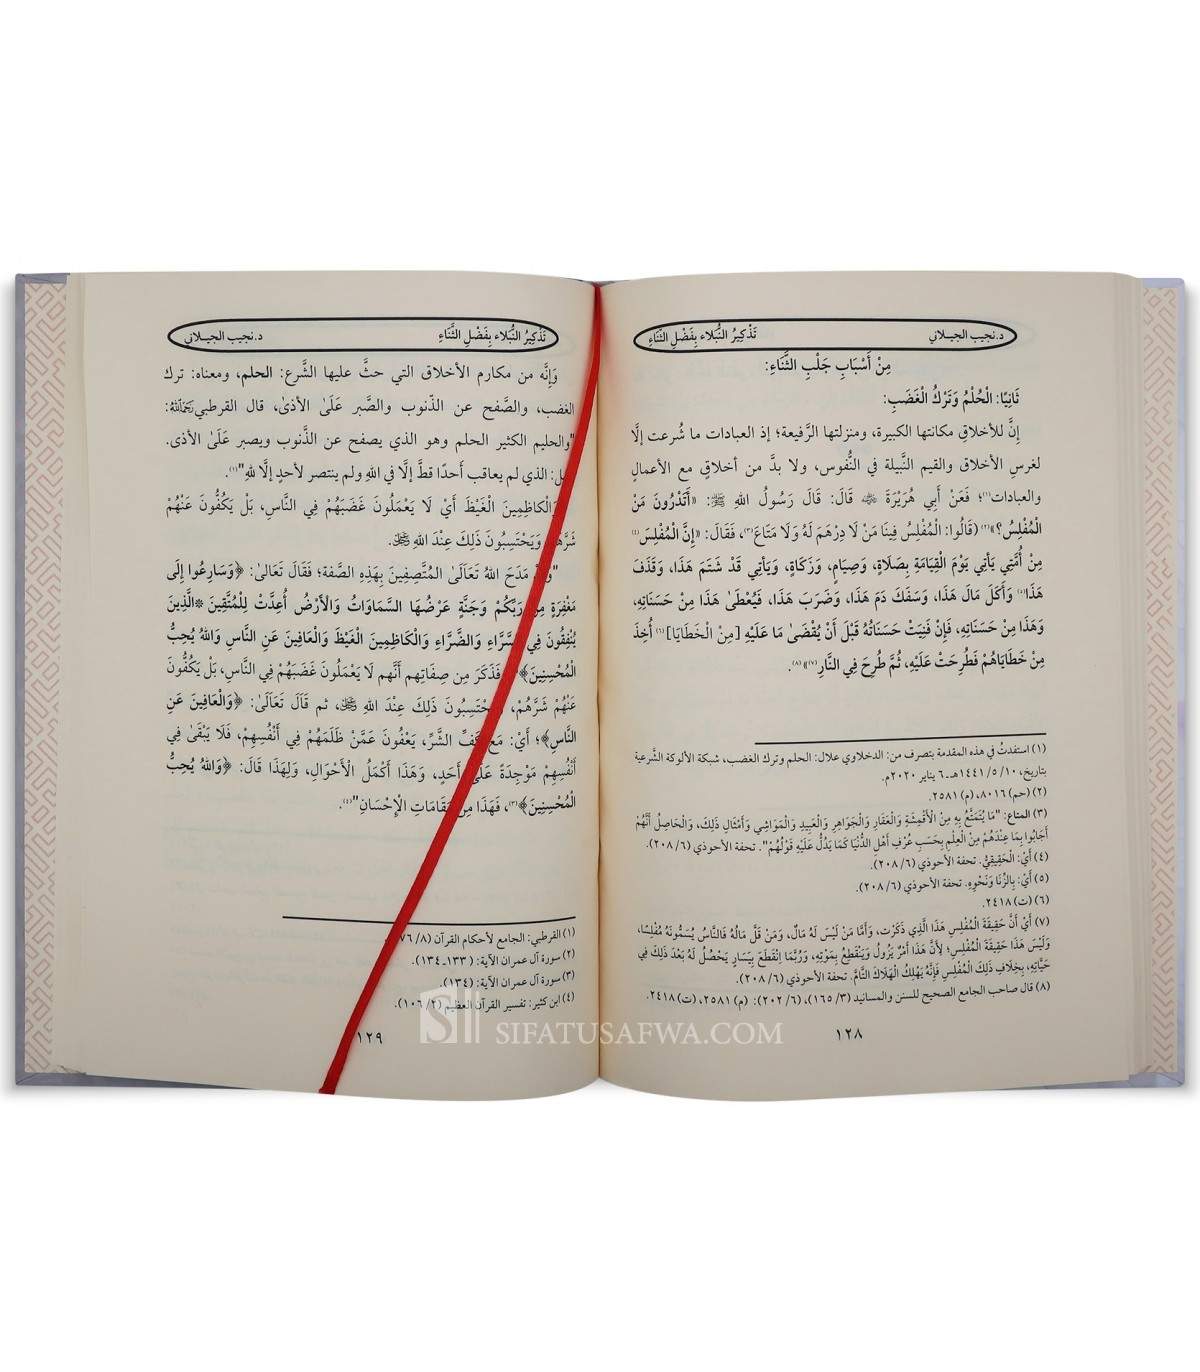 د.نجيب الجيلاني تَذْكِيرُ النُّبَلاء بِفَضْلِ الثَّنَاءِ
مِنْ أَسْبَابِ جَلْبِ الثَّنَاءِ:
ثَانِيًا: الْحُلْمُ وَتَرْكُ الْغَضَبِ:
إنَّ للأخلاقِ مكانتها الكبيرة، ومنزلتها الرَّفيعة؛ إذ العبادات ما شُرعت إلَّا
لغرسِ الأخلاق والقيم النَّبيلة في النُّفوس، ولا بدَّ من أخلاقٍ مع الأعمالِ
والعبادات(١)؛ فَعَنْ أَبِي هُرَيْرَةَ ﵁ قَالَ: قَالَ رَسُولُ اللهِ ﷺ: «أَتَدْرُونَ مَنْ
الْمُفْلِسُ؟»(٢) (قَالُوا: الْمُفْلِسُ فِينَا مَنْ لَا دِرْهَمَ لَهُ وَلَا مَتَاعَ(٣)، فَقَالَ: «إِنَّ الْمُفْلِسَ(٤)
مِنْ أُمَّتِي يَأْتِي يَوْمَ الْقِيَامَةِ بِصَلَاةٍ، وَصِيَامٍ، وَزَكَاةٍ، وَيَأْتِي قَدْ شَتَمَ هَذَا، وَقَذَفَ
هَذَا(٥) وَأَكَلَ مَالَ هَذَا، وَسَفَكَ دَمَ هَذَا، وَضَرَبَ هَذَا، فَيُعْطَىٰ هَذَا مِنْ حَسَنَاتِهِ،
وَهَذَا مِنْ حَسَنَاتِهِ، فَإِنْ فَنِيَتْ حَسَنَاتُهُ قَبْلَ أَنْ يُقْضَىٰ مَا عَلَيْهِ [مِنْ الْخَطَايَا](٦) أُخِذَ
مِنْ خَطَايَاهُمْ فَطُرِحَتْ عَلَيْهِ، ثُمَّ طُرِحَ فِي النَّارِ(٧)»(٨).
(١) استفدتُ في هذه المقدمة بتصرف من: الدخلاوي علال: الحلم وترك الغضب، شبكة الألوكة الشَّرعية
بتاريخ، ١٠/ ٥/ ١٤٤١هـ ـ ٦ يناير ٢٠٢٠م.
(٢) (حم) ٨٠١٦، (م) ٢٥٨١.
(٣) المتاع: "مَا يُتَمَتَّعُ بِهِ مِنْ الْأَقْمِشَةِ وَالْعَقَارِ وَالْجَوَاهِرِ وَالْعَبِيدِ وَالْمَوَاشِي وَأَمْثَالِ ذَلِكَ، وَالْحَاصِلُ أَنَّهُمْ
أَجَابُوا بِمَا عِنْدَهُمْ مِنْ الْعِلْمِ بِحَسَبِ عُرْفِ أَهْلِ الدُّنْيَا كَمَا يَدُلُّ عَلَيْهِ قَوْلُهُمْ". تحفة الأحوذي (٦/ ٢٠٨).
(٤) أَيْ: الْحَقِيقِيُّ. تحفة الأحوذي (٦/ ٢٠٨).
(٥) أَيْ: بِالزِّنَا وَنَحْوِهِ. تحفة الأحوذي (٦/ ٢٠٨).
(٦) (ت) ٢٤١٨.
(٧) أَيْ أَنَّ حَقِيقَةَ الْمُفْلِسِ هَذَا الَّذِي ذَكَرْت، وَأَمَّا مَنْ لَيْسَ لَهُ مَالٌ، وَمَنْ قَلَّ مَالُهُ فَالنَّاسُ يُسَمُّونَهُ مُفْلِسًا،
وَلَيْسَ هَذَا حَقِيقَةَ الْمُفْلِسِ؛ لِأَنَّ هَذَا أَمْرٌ يَزُولُ وَيَنْقَطِعُ بِمَوْتِهِ، وَرُبَّمَا انْقَطَعَ بِيَسَارٍ يَحْصُلُ لَهُ بَعْدَ ذَلِكَ فِي
حَيَّاتِهِ، بِخِلَافِ ذَلِكَ الْمُفْلِسِ فَإِنَّهُ يَهْلِكُ الْهَلَاكَ التَّامَّ. تحفة الأحوذي (٦/ ٢٠٨).
(٨) قال صاحب الجامع الصحيح للسنن والمسانيد (٣/ ١٦٥)، (٦/ ٢٠٢): (م) ٢٥٨١، (ت) ٢٤١٨.
١٢٨
تَذْكِيرُ النُّبَلاء بِفَضْلِ الثَّنَاءِ د.نجيب الجيلاني
وَإِنَّه من مكارم الأخلاق التي حثَّ عليها الشَّرع: الحلم، ومعناه: ترك
الغضب، والصَّفح عن الذّنوب والصَّبر عَلَىٰ الأذىٰ، قال القرطبي رَحِمَهُ اللهُ:
"والحليم الكثير الحلم وهو الذي يصفح عن الذَّنوب ويصبر عَلَىٰ الأذى.
الذي لم يعاقب أَحدًا قطَّ إلَّا في اللهِ ولم ينتصر لأحدٍ إلَّا للهِ"(١).
وَالْكَاظِمِينَ الْغَيْظَ أَيْ لَا يَعْمَلُونَ غَضَبَهُمْ فِي النَّاسِ، بَلْ يَكُفُّونَ عَنْهُمْ
شَرَّهُمْ وَيَحْتَسِبُونَ ذَلِكَ عِنْدَ اللهِ ﷻ.
مَدَحَ اللهُ تَعَالَىٰ الْمُتَّصِفِينَ بِهَذِهِ الصِّفة؛ فَقَالَ تَعَالىٰ: ﴿وَسَارِعُوا إِلَى
مَغْفِرَةٍ مِنْ رَبِّكُمْ وَجَنَّةٍ عَرْضُهَا السَّمَاوَاتُ وَالْأَرْضُ أُعِدَّتْ لِلْمُتَّقِينَ *الَّذِينَ
يُنْفِقُونَ فِي السَّرَّاءِ وَالضَّرَّاءِ وَالْكَاظِمِينَ الْغَيْظَ وَالْعَافِينَ عَنِ النَّاسِ وَاللهُ يُحِبُّ
الْمُحْسِنِينَ﴾ فَذَكَرَ مِن صِفَاتِهِم أَنَّهم لَا يَعْمَلُونَ غَضَبَهُمْ فِي النَّاسِ، بَلْ يَكُفُّونَ
عَنْهُمْ شَرَّهُمْ، وَيَحْتَسِبُونَ ذَلِكَ عِنْدَ اللهِ ﷻ، ثم قَالَ تَعَالَىٰ: ﴿وَالْعَافِينَ عَنِ
النَّاسِ﴾؛ أَيْ: مَعَ كَفِّ الشَّرِّ، يَعْفُونَ عَمَّنْ ظَلَمَهُمْ فِي أَنْفُسِهِمْ، فَلَا يَبْقَىٰ فِي
أَنْفُسِهِمْ مَوْجِدَةً عَلَىٰ أَحَدٍ، وَهَذَا أَكْمَلُ الْأَحْوَالِ، وَلِهَذَا قَالَ: ﴿وَاللهُ يُحِبُّ
الْمُحْسِنِينَ﴾(٣)، فَهَذَا مِنْ مَقَامَاتِ الْإِحْسَانِ"(٤).
(١) القرطبي: الجامع لأحكام القرآن (٨/
(٢) سورة آل عمران الآية: (١٣٣ـ ١٣٤).
(٣) سورة آل عمران الآية: (١٣٤).
(٤) ابن كثير: تفسير القرآن العظيم (٢/ ١٠٦).
١٢٩
SIFATUSAFWA.COM